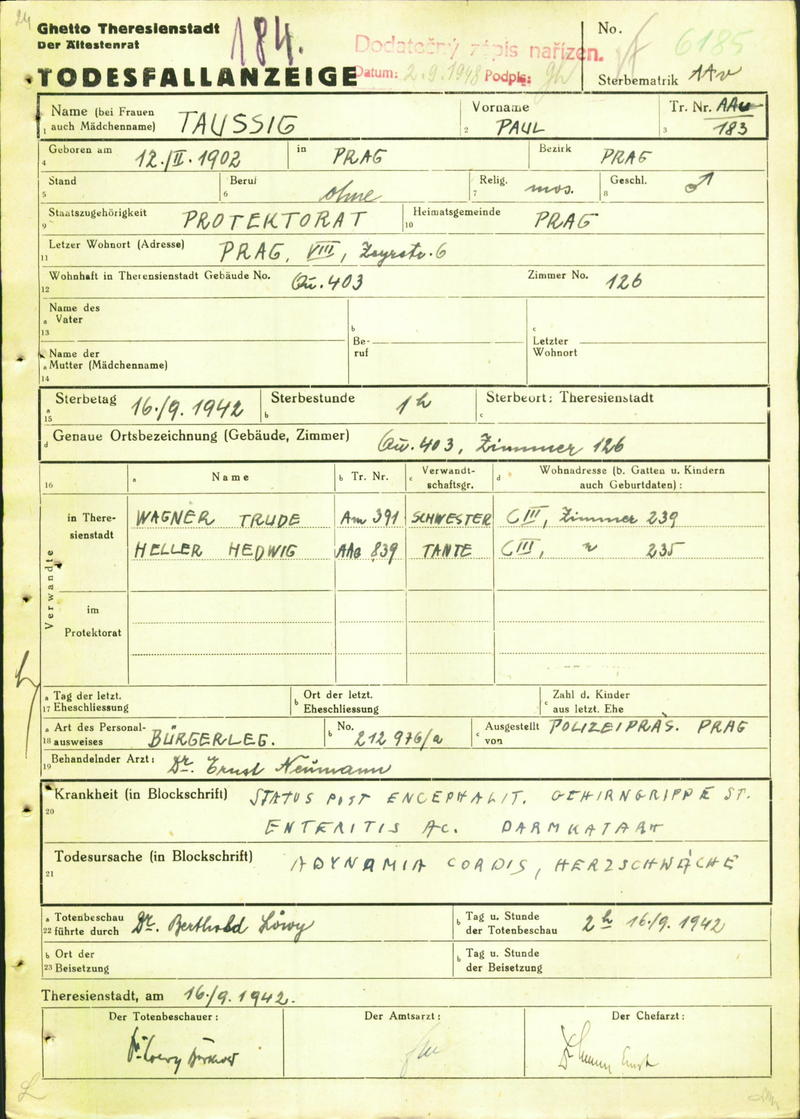 Ghetto Theresienstadt
Der Ältestenrat
184.
Dodatečný zápis nařízen.
Datum: 2.9.1948 Podpis:
No. 6185
TODESFALLANZEIGE
Sterbematrik
Name (bei Frauen auch Mädchenname) TAUSSIG
1
Vorname PAUL
2
Tr. Nr. AAu 183
3
Geboren am 12./II. 1902 in PRAG Bezirk PRAG
4
Stand Beruf ohne Relig. mos. Geschl. ♂
5 6 7 8
Staatszugehörigkeit PROTEKTORAT Heimatsgemeinde PRAG
9 10
Letzer Wohnort (Adresse) PRAG, VIII, 6
11
Wohnhaft in Theresienstadt Gebäude No. Qu. 403 Zimmer No. 126
12
Name des Vater
a 13
b Beruf
c Letzter Wohnort
Name der Mutter (Mädchenname)
a 14
Sterbetag 16./9. 1942 Sterbestunde 1 h Sterbeort: Theresienstadt
a 15 b c
d Genaue Ortsbezeichnung (Gebäude, Zimmer) Qu. 403, Zimmer 126
16 a Name b Tr. Nr. c Verwandtschaftsgr. d Wohnadresse (b. Gatten u. Kindern auch Geburtdaten):
Verwandte
in Theresienstadt
WAGNER TRUDE Am 391 SCHWESTER C III, Zimmer 239
HELLER HEDWIG AAo 839 TANTE C III, " 235
im Protektorat
a Tag der letzt. 17 Eheschliessung
b Ort der letzt. Eheschliessung
c Zahl d. Kinder aus letzt. Ehe
a Art des Personal- 18 ausweises BÜRGERLEG. b No. 212 976/a c Ausgestellt von POLIZEIPRÄS. PRAG
19 Behandelnder Arzt: Dr. Ernst Neumann
Krankheit (in Blockschrift) STATUS POST ENCEPHALIT. GEHIRNGRIPPE ST.
20 ENTERITIS AC. DARMKATARR
Todesursache (in Blockschrift) ADYNAMIA CORDIS, HERZSCHWÄCHE
21
a Totenbeschau 22 führte durch Dr. Berthold Löwy b Tag u. Stunde der Totenbeschau 2 h 16./9. 1942
b Ort der 23 Beisetzung
b Tag u. Stunde der Beisetzung
Theresienstadt, am 16./9. 1942.
Der Totenbeschauer: Der Amtsarzt: Der Chefarzt: